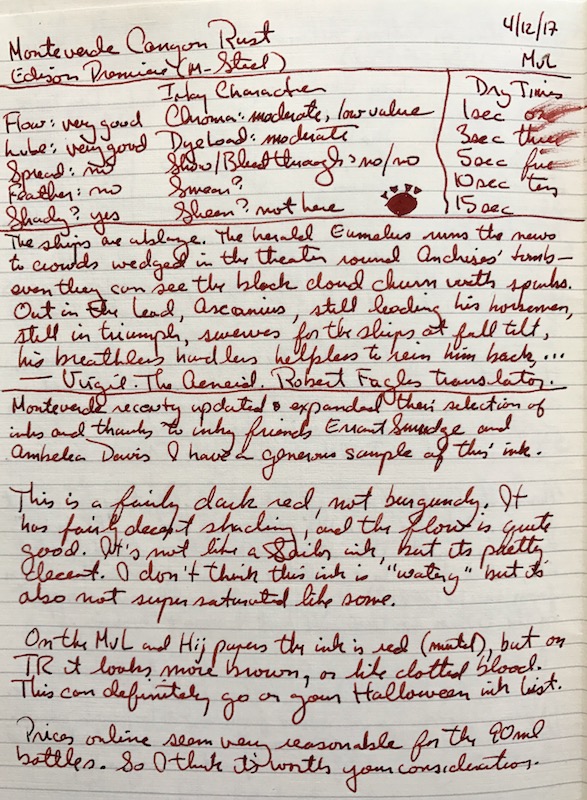 4/12/17
Monteverde Canyon Rust
Edison Premiere (M-Steel) MvL
Inky Character Dry Times
Flow: very good Chroma: moderate, low value 1sec one
Lube: very good Dye load: moderate 3sec three
Spread: no Show/Bleedthrough: no/no 5sec five
Feather: no Smear? 10sec ten
Shady? yes Sheen? not here 15sec
The ships are ablaze. The herald Eumelus runs the news
to crowds wedged in the theater round Anchises' tomb—
even they can see the black cloud churn with sparks.
Out in the lead, Ascanius, still leading his horsemen,
still in triumph, swerves for the ships at full tilt,
his breathless handlers helpless to rein him back, ...
— Virgil. The Aeneid. Robert Fagles translator.
Monteverde recently updated & expanded their selection of
inks and thanks to inky friends Errant Smudge and
Amberlea Davis I have a generous sample of this ink.
This is a fairly dark red, not burgundy. It
has fairly decent shading, and the flow is quite
good. It's not like a Sailor ink, but its pretty
decent. I don't think this ink is "watery" but its
also not super saturated like some.
On the MvL and Hij papers the ink is red (muted), but on
TR it looks more brown, or like clotted blood.
This can definitely go on your Halloween ink list.
Prices online seem very reasonable for the 90ml
bottles. So I think its worth your consideration.